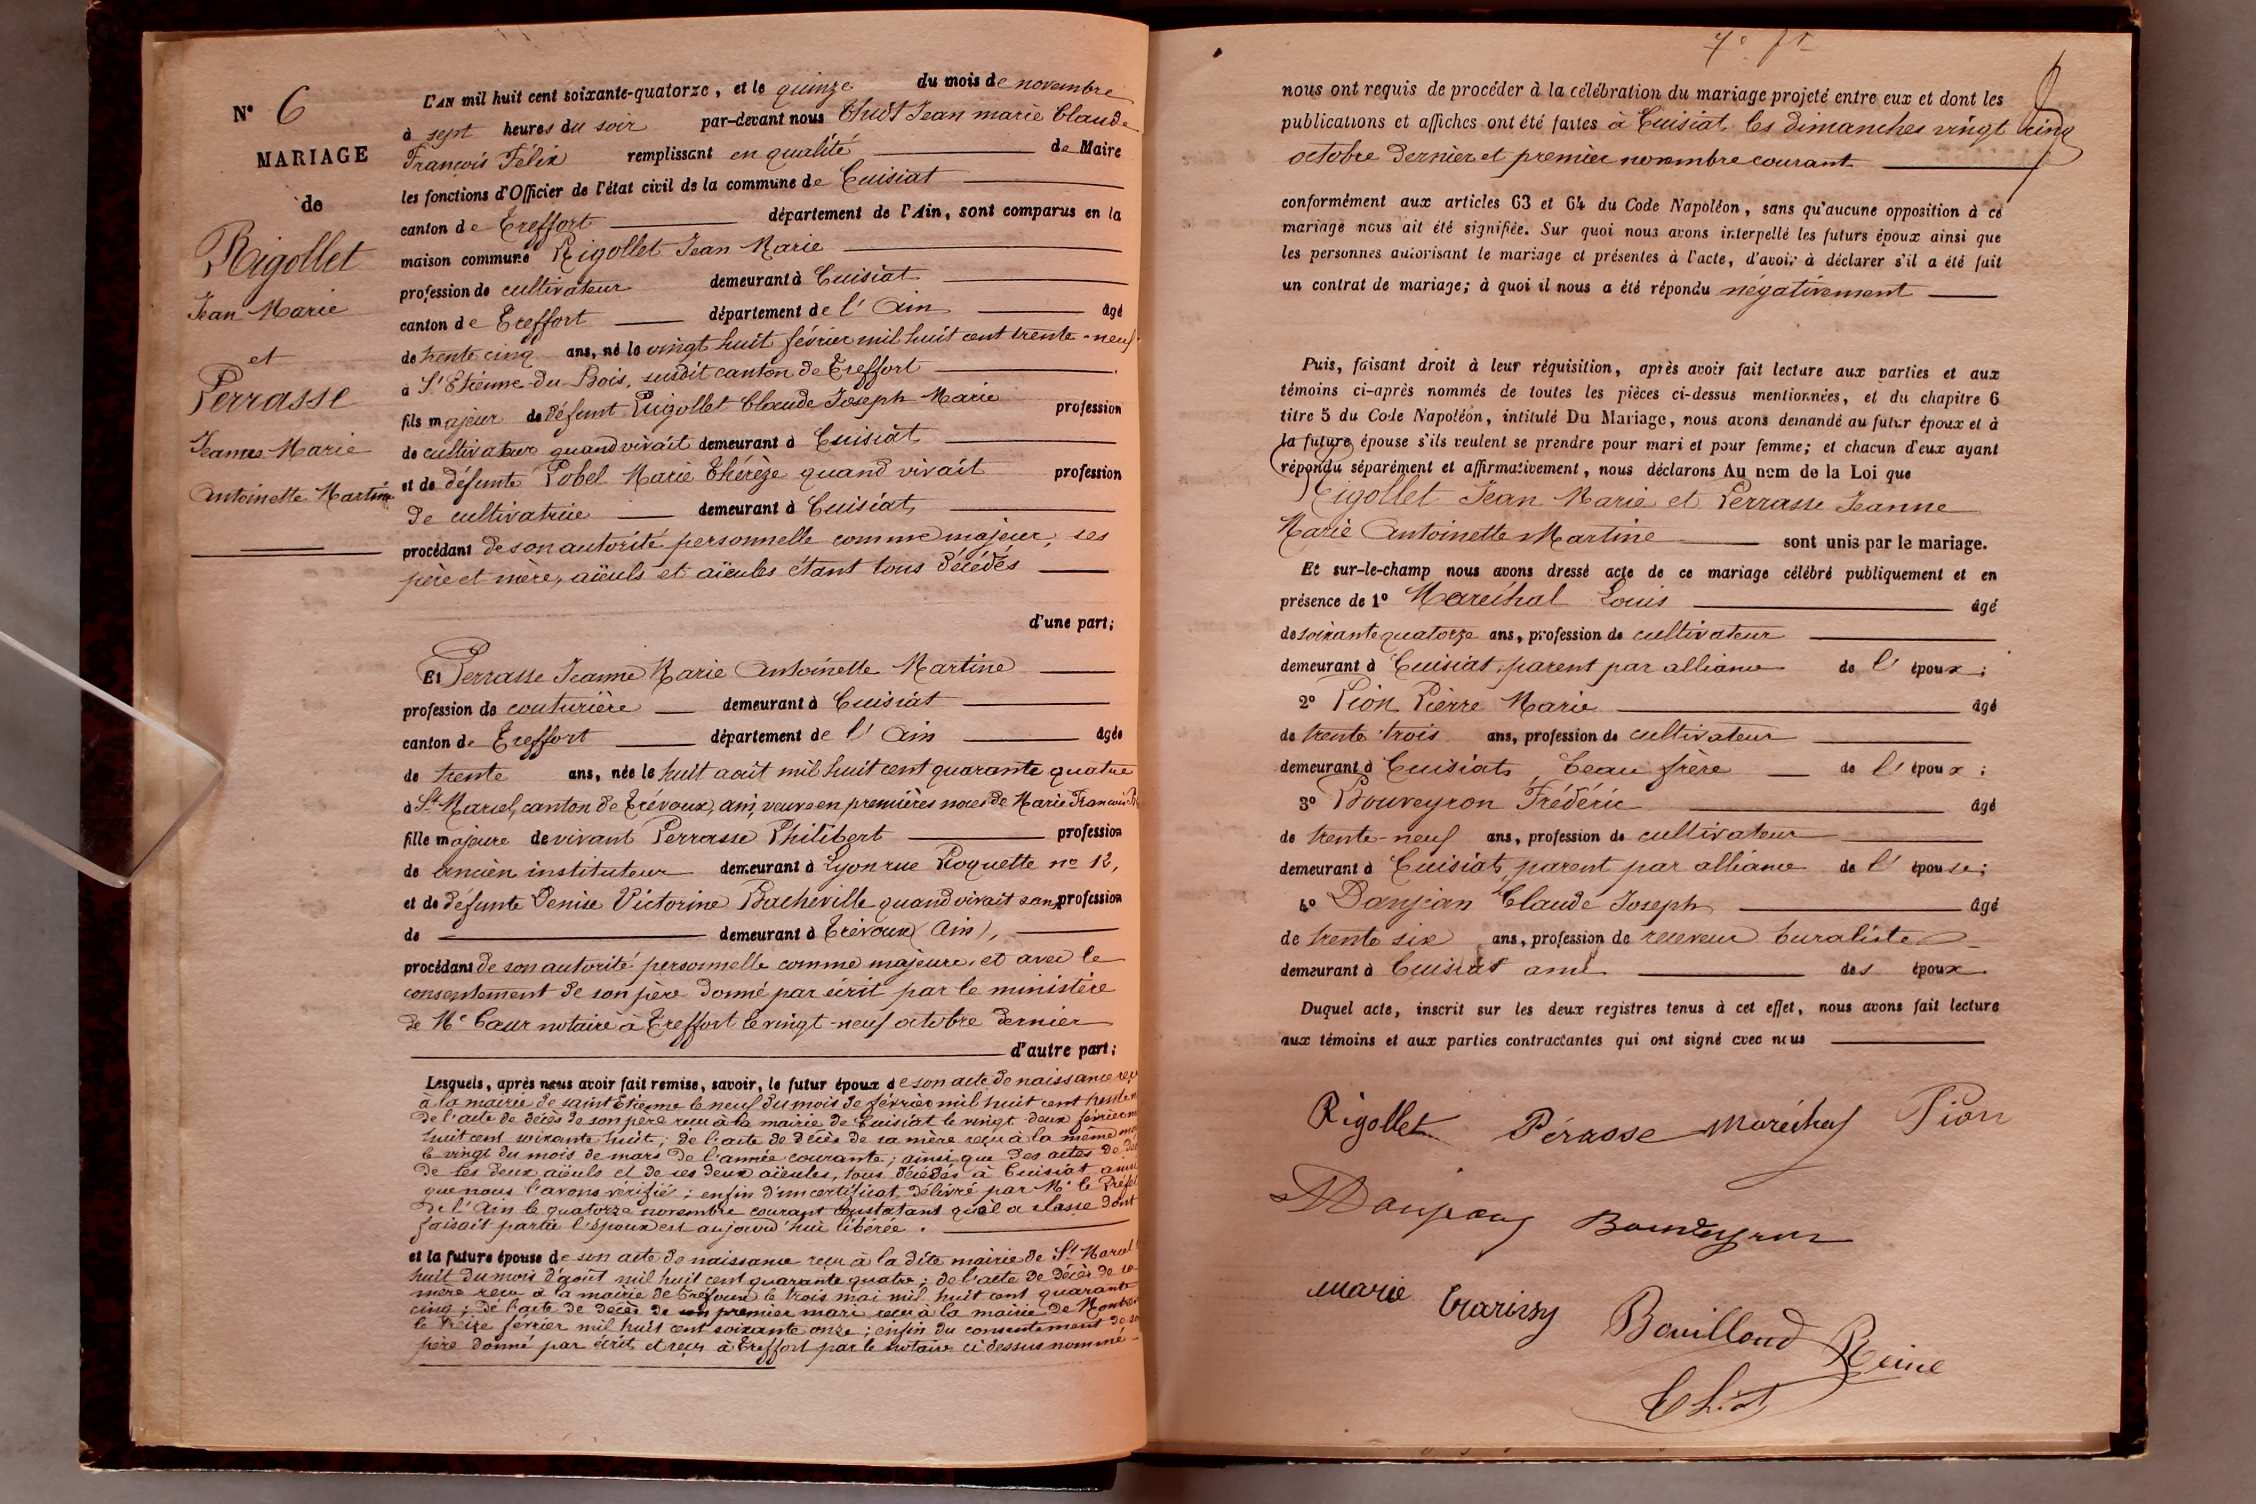 N° 6
MARIAGE
de
Rigollet
Jean Marie
et
Perrasse
Jeanne Marie
Antoinette Martine
L'AN mil huit cent soixante-quatorze, et le quinze du mois de novembre
à sept heures du soir par-devant nous Chût Jean marie Claude
François Félix remplissant en qualité de Maire
les fonctions d'Officier de l'état civil de la commune de Cuisiat
canton de Treffort département de l'Ain, sont comparus en la
maison commune Rigollet Jean Marie
profession de cultivateur demeurant à Cuisiat
canton de Treffort département de l'Ain âgé
de trente cinq ans, né le vingt huit février mil huit cent trente-neuf
à St Etienne-du-Bois, susdit canton de Treffort
fils majeur de défunt Rigollet Claude Joseph Marie profession
de cultivateur quand vivait demeurant à Cuisiat
et de défunte Pobel Marie Thérèze quand vivait profession
de cultivatrice demeurant à Cuisiat,
procédant de son autorité personnelle comme majeur, ses
père et mère, aïeuls et aïeules étant tous décédés
d'une part;
Et Perrasse Jeanne Marie Antoinette Martine
profession de couturière demeurant à Cuisiat
canton de Treffort département de l'Ain âgée
de trente ans, née le huit août mil huit cent quarante quatre
à St Marcel, canton de Trévoux, ain, veuve en premières noces de Marie François
fille majeure de vivant Perrasse Philibert profession
de ancien instituteur demeurant à Lyon rue Roquette no 12,
et de défunte Denise Victorine Bacheville quand vivait sans profession
de demeurant à Trévoux (Ain),
procédant de son autorité personnelle comme majeure, et avec le
consentement de son père donné par écrit par le ministère
de Me Cour notaire à Treffort le vingt-neuf octobre dernier
d'autre part;
Lesquels, après nous avoir fait remise, savoir, le futur époux de son acte de naissance reçu
à la mairie de saint Etienne le neuf du mois de février mil huit cent
de l'acte de décès de son père reçu à la mairie de Cuisiat le vingt-deux février
huit cent soixante huit; de l'acte de décès de sa mère reçu à la même
le vingt du mois de mars de l'année courante; ainsi que des actes de
de ses deux aïeuls et de ses deux aïeules, tous décédés à Cuisiat ainsi
que nous l'avons vérifié; enfin d'un certificat délivré par Mr le Préfet
de l'Ain le quatorze novembre courant constatant qu'el a classe dont
faisait partie l'époux est aujourd'hui libérée.
et la future épouse de son acte de naissance reçu à la dite mairie de St Marcel
huit du mois d'août mil huit cent quarante quatre; de l'acte de décès de sa
mère reçu à la mairie de Trévoux le trois mai mil huit cent quarante
cinq; de l'acte de décès de son premier mari reçu à la mairie de
le treize février mil huit cent soixante onze; enfin du consentement de son
père donné par écrit et reçu à Treffort par le notaire ci dessus nommé
nous ont requis de procéder à la célébration du mariage projeté entre eux et dont les
publications et affiches ont été faites à Cuisiat les dimanches vingt cinq
octobre dernier et premier novembre courant
conformément aux articles 63 et 64 du Code Napoléon, sans qu'aucune opposition à ce
mariage nous ait été signifiée. Sur quoi nous avons interpellé les futurs époux ainsi que
les personnes autorisant le mariage et présentes à l'acte, d'avoir à déclarer s'il a été fait
un contrat de mariage; à quoi il nous a été répondu négativement
Puis, faisant droit à leur réquisition, après avoir fait lecture aux parties et aux
témoins ci-après nommés de toutes les pièces ci-dessus mentionnées, et du chapitre 6
titre 5 du Code Napoléon, intitulé Du Mariage, nous avons demandé au futur époux et à
la future épouse s'ils veulent se prendre pour mari et pour femme; et chacun d'eux ayant
répondu séparément et affirmativement, nous déclarons Au nom de la Loi que
Rigollet Jean Marie et Perrasse Jeanne
Marie Antoinette Martine sont unis par le mariage.
Et sur-le-champ nous avons dressé acte de ce mariage célébré publiquement et en
présence de 1° Maréchal Louis âgé
de soixante quatorze ans, profession de cultivateur
demeurant à Cuisiat, parent par alliance de l'époux;
2° Pion Pierre Marie âgé
de trente trois ans, profession de cultivateur
demeurant à Cuisiat, beau frère de l'époux;
3° Bouveyron Frédéric âgé
de trente-neuf ans, profession de cultivateur
demeurant à Cuisiat, parent par alliance de l'épouse;
4° Danjean Claude Joseph âgé
de trente six ans, profession de receveur buraliste
demeurant à Cuisiat ami des époux
Duquel acte, inscrit sur les deux registres tenus à cet effet, nous avons fait lecture
aux témoins et aux parties contractantes qui ont signé avec nous
Rigollet Pérasse Maréchal Pion
Danjean Bouveyron
Marie Bouilloud Reine
Chût